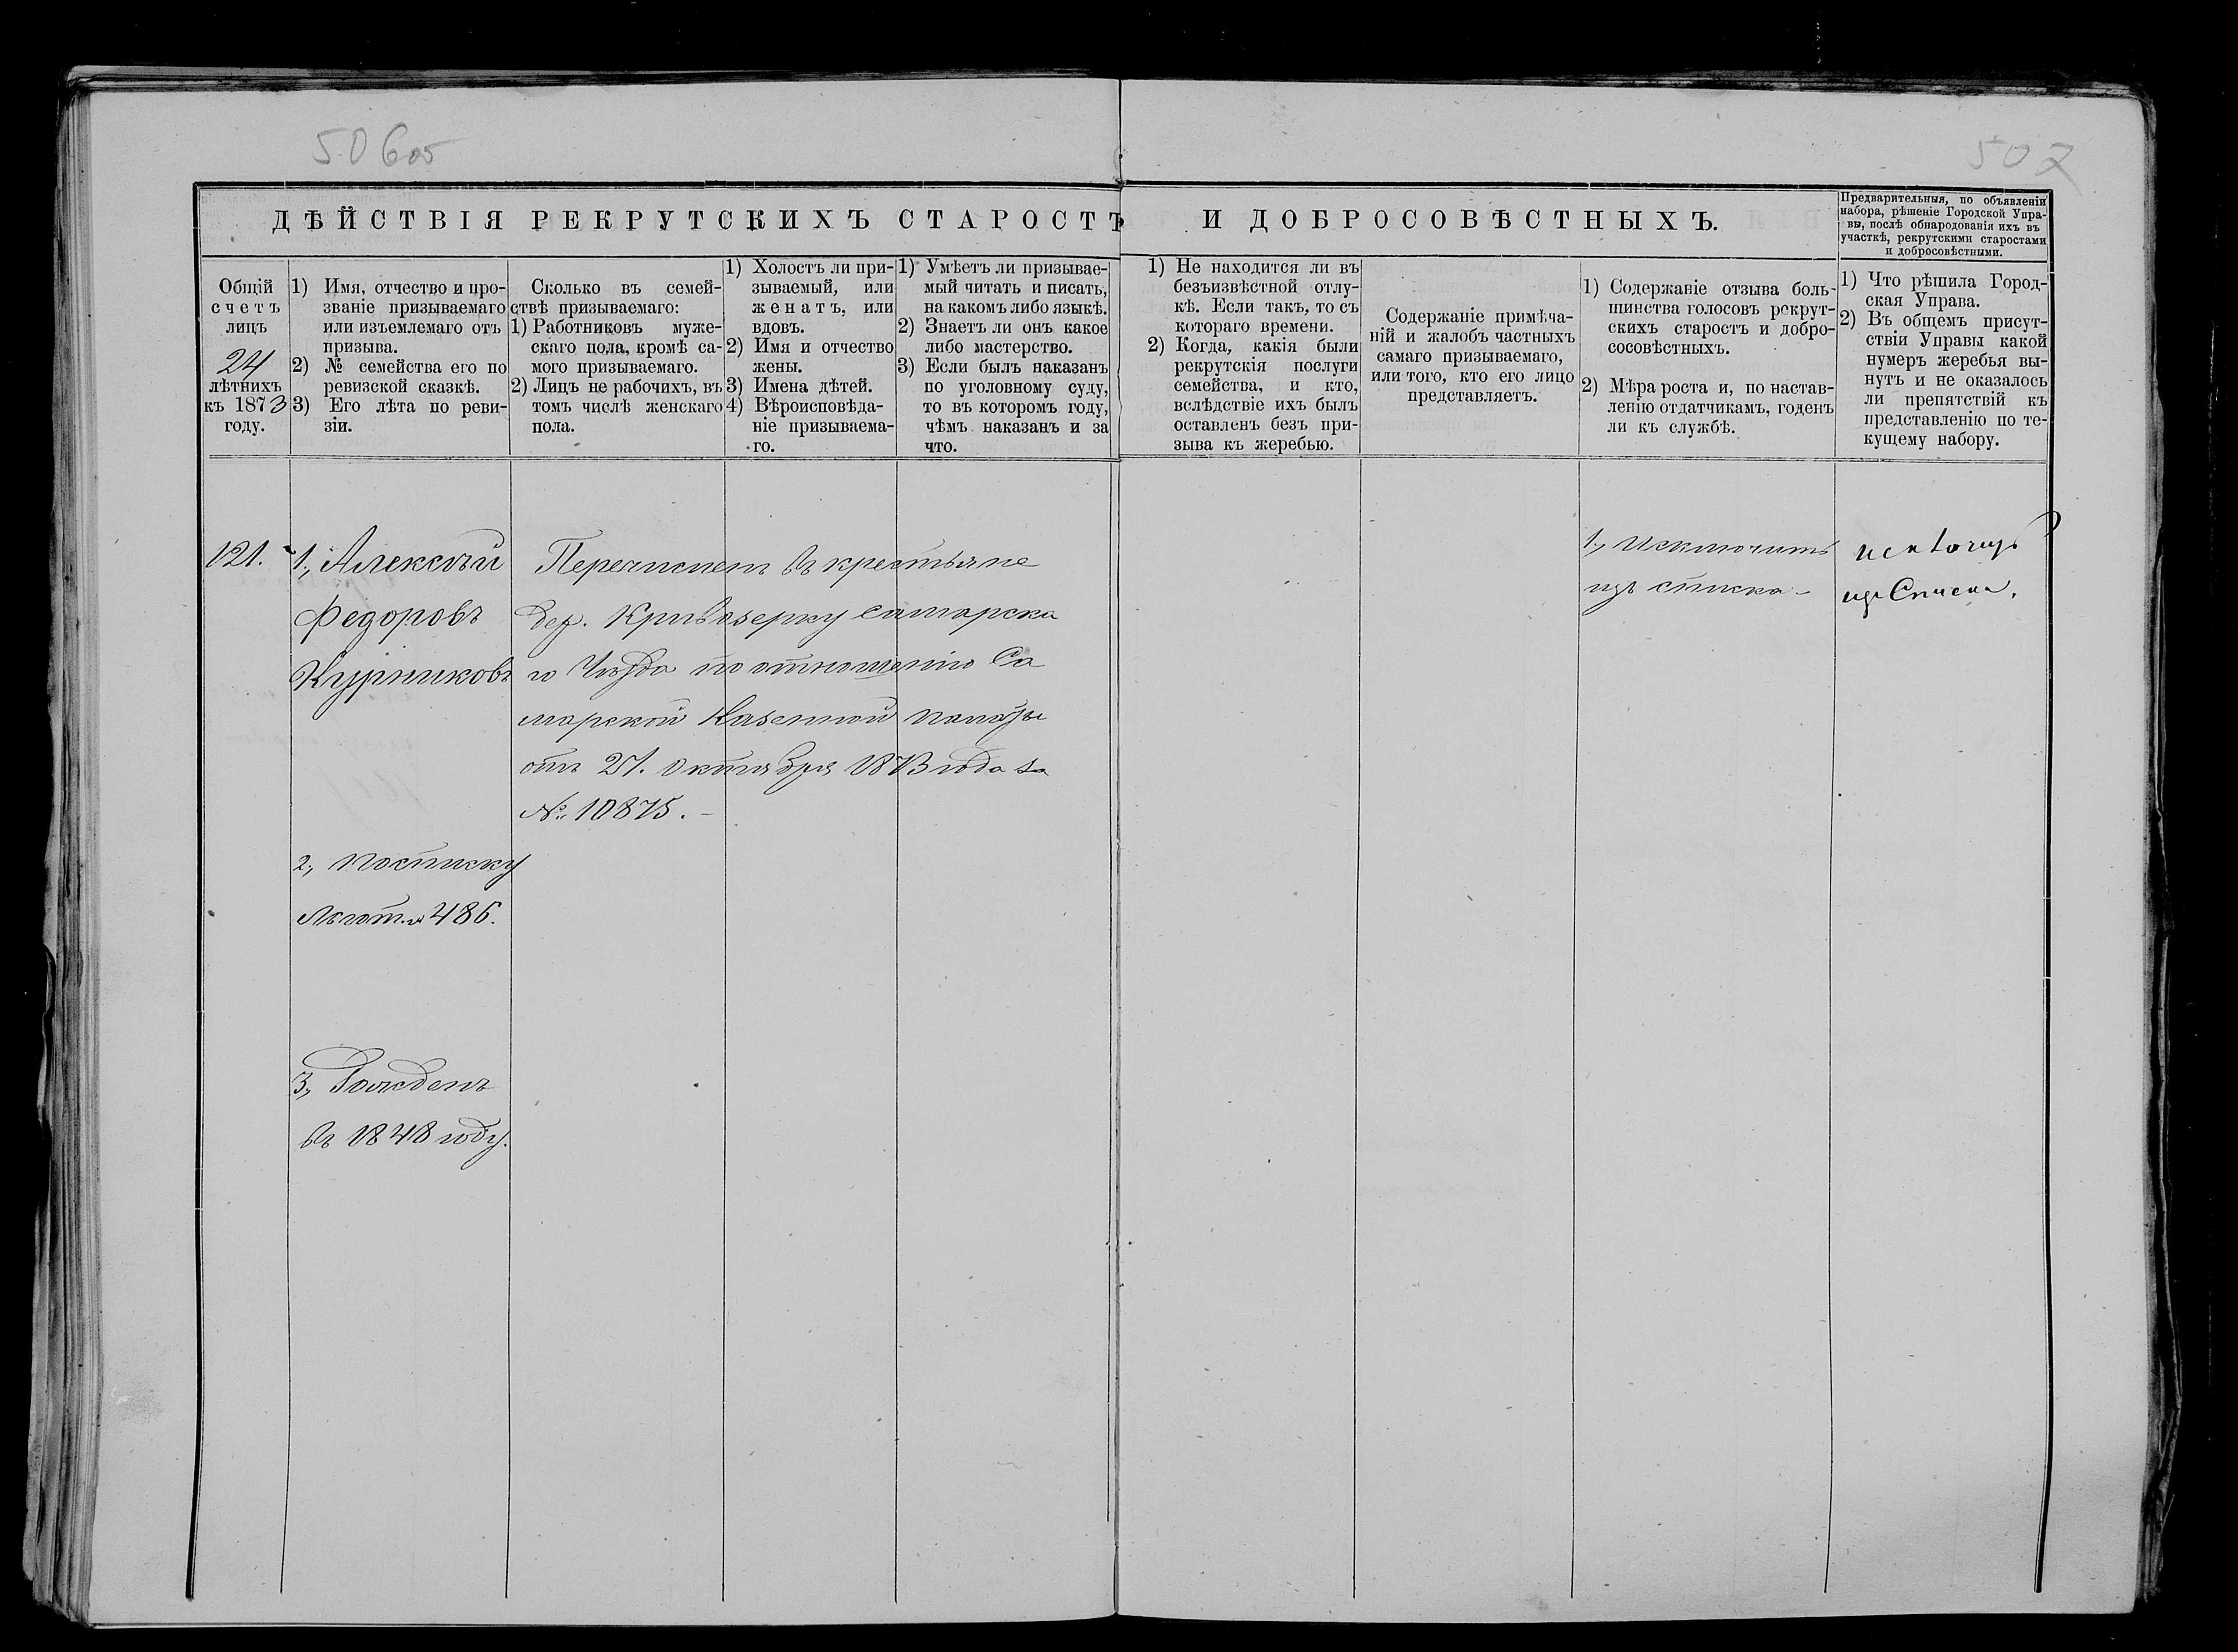 506 об
507
ДѢЙСТВІЯ РЕКРУТСКИХЪ СТАРОСТЪ И ДОБРОСОВѢСТНЫХЪ.
Предварительныя, по объявленіи
набора, рѣшеніе Городской Упра-
вы, послѣ обнародованія ихъ въ
участкѣ, рекрутскими старостами
и добросовѣстными.
Общій
счетъ
лицъ
24
лѣтнихъ
къ 1873
году.
1) Имя, отчество и про-
званіе призываемаго
или изъемлемаго отъ
призыва.
2) № семейства его по
ревизской сказкѣ.
3) Его лѣта по реви-
зіи.
Сколько въ семей-
ствѣ призываемаго:
1) Работниковъ муже-
скаго пола, кромѣ са-
мого призываемаго.
2) Лицъ не рабочихъ, въ
томъ числѣ женскаго
пола.
1) Холостъ ли при-
зываемый, или
женатъ, или
вдовъ.
2) Имя и отчество
жены.
3) Имена дѣтей.
4) Вѣроисповѣда-
ніе призываема-
го.
1) Умѣетъ ли призывае-
мый читать и писать,
на какомъ либо языкѣ.
2) Знаетъ ли онъ какое
либо мастерство.
3) Если былъ наказанъ
по уголовному суду,
то въ которомъ году,
чѣмъ наказанъ и за
что.
1) Не находится ли въ
безъизвѣстной отлу-
кѣ. Если такъ, то съ
котораго времени.
2) Когда, какія были
рекрутскія послуги
семейства, и кто,
вслѣдствіе ихъ былъ
оставленъ безъ при-
зыва къ жеребью.
Содержаніе примѣча-
ній и жалобъ частныхъ
самаго призываемаго,
или того, кто его лицо
представляетъ.
1) Содержаніе отзыва боль-
шинства голосовъ рекрут-
скихъ старостъ и добро-
сосовѣстныхъ.
2) Мѣра роста и, по настав-
ленію отдатчикамъ, годенъ
ли къ службѣ.
1) Что рѣшила Город-
ская Управа.
2) Въ общемъ присут-
ствіи Управы какой
нумеръ жеребья вы-
нутъ и не оказалось
ли препятствій къ
представленію по те-
кущему набору.
121.
1., Алексѣй
Федоровъ
Курниковъ
2., по списку
486.
3., Рожденъ
въ 1848 году.
Перечисленъ въ крестьяне
дер. Кривозерку Самарска
го Уѣзда по отношенію Са
марской Казенной палаты
отъ 21. Октября 1873 года за
№ 10875. –
1., Исключить
изъ списка –
исключ
изъ Списка.